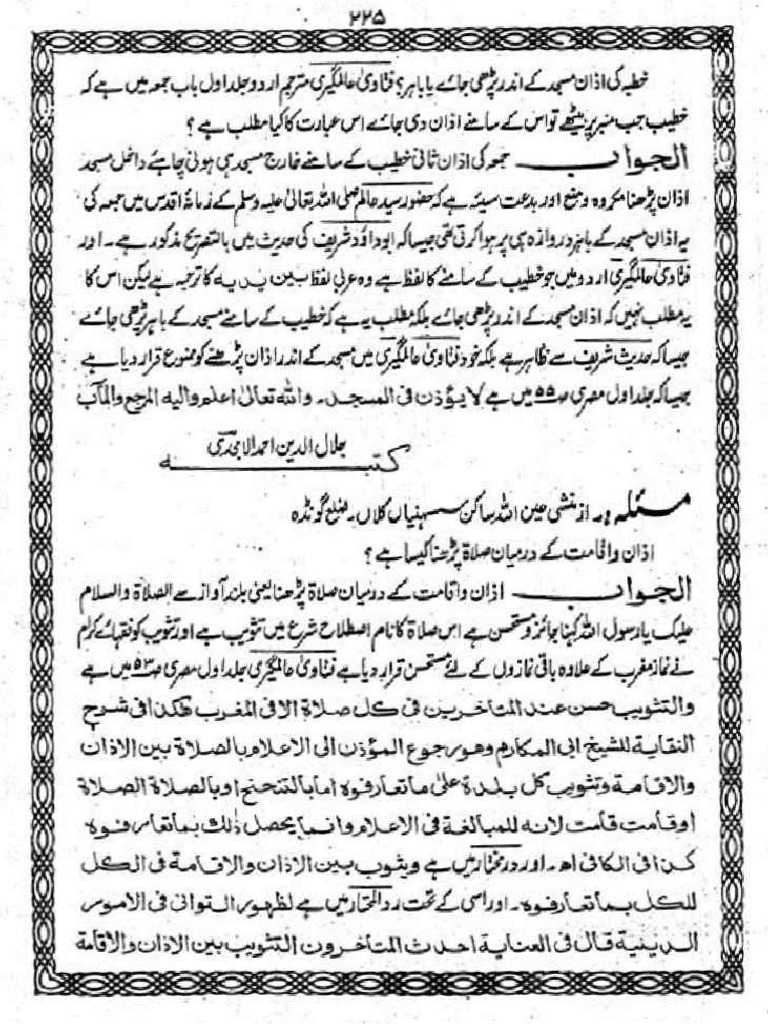 ۲۲۵
خطبہ کی اذان مسجد کے اندر پڑھی جائے یا باہر؟ فتاویٰ عالمگیری مترجم اردو جلد اول باب جمعہ میں ہے کہ
خطیب جب منبر پر بیٹھے تو اس کے سامنے اذان دی جائے اس عبارت کا کیا مطلب ہے؟
الجواب جمعہ کی اذان ثانی خطیب کے سامنے خارج مسجد ہی ہونی چاہئے داخل مسجد
اذان پڑھنا مکروہ و منع اور بدعت سیئہ ہے کہ حضور سید عالم صلی اللہ تعالیٰ علیہ وسلم کے زمانۂ اقدس میں جمعہ کی
یہ اذان مسجد کے باہر دروازہ ہی پر ہوا کرتی تھی جیسا کہ ابوداؤد شریف کی حدیث میں بالتصریح مذکور ہے۔ اور
فتاویٰ عالمگیری اردو میں جو خطیب کے سامنے کا لفظ ہے وہ عربی لفظ بین یدیہ کا ترجمہ ہے لیکن اس کا
یہ مطلب نہیں کہ اذان مسجد کے اندر پڑھی جائے بلکہ مطلب یہ ہے کہ خطیب کے سامنے مسجد کے باہر پڑھی جائے
جیسا کہ حدیث شریف سے ظاہر ہے بلکہ خود فتاویٰ عالمگیری میں مسجد کے اندر اذان پڑھنے کو ممنوع قرار دیا ہے
جیسا کہ جلد اول مصری ص۵۵ میں ہے لا یؤذن فی المسجد۔ واللہ تعالیٰ اعلم والیہ المرجع والمآب
جلال الدین احمد الامجدی
کتبہ
مسئلہ:۔ از منشی معین اللہ ساکن سہنیاں کلاں۔ ضلع گونڈہ
اذان واقامت کے درمیان صلاۃ پڑھنا کیسا ہے؟
الجواب اذان واقامت کے درمیان صلاۃ پڑھنا یعنی بلند آواز سے الصلاۃ والسلام
علیک یا رسول اللہ کہنا جائز و مستحسن ہے اس صلاۃ کا نام اصطلاح شرع میں تثویب ہے اور تثویب کو فقہائے کرام
نے نماز مغرب کے علاوہ باقی نمازوں کے لئے مستحسن قرار دیا ہے فتاویٰ عالمگیری جلد اول مصری ص۵۳ میں ہے
والتثویب حسن عند المتاخرین فی کل صلاۃ الا فی المغرب ھکذا فی شرح
النقایۃ للشیخ ابی المکارم وھو رجوع المؤذن الی الاعلام بالصلاۃ بین الاذان
والاقامۃ وتثویب کل بلدۃ علیٰ ما تعارفوہ اما بالتنحنح او بالصلاۃ الصلاۃ
او قامت قامت لانہ للمبالغۃ فی الاعلام وانما یحصل ذٰلک بما تعارفوہ
کذا فی الکافی اھ۔ اور درمختار میں ہے ویثوب بین الاذان والاقامۃ فی الکل
للکل بما تعارفوہ۔ اور اسی کے تحت ردالمحتار میں ہے لظھور التوانی فی الامور
الدینیۃ قال فی العنایۃ احدث المتاخرون التثویب بین الاذان والاقامۃ